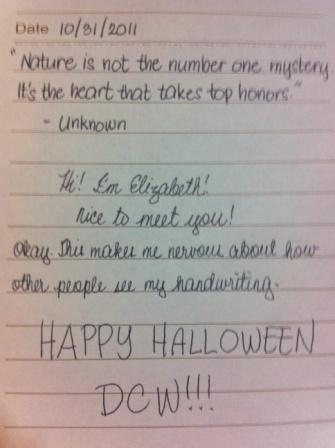 Date 10/31/2011
"Nature is not the number one mystery.
It's the heart that takes top honors."
- Unknown
Hi! I'm Elizabeth!
nice to meet you!
Okay. This makes me nervous about how
other people see my handwriting.
HAPPY HALLOWEEN
DCW!!!